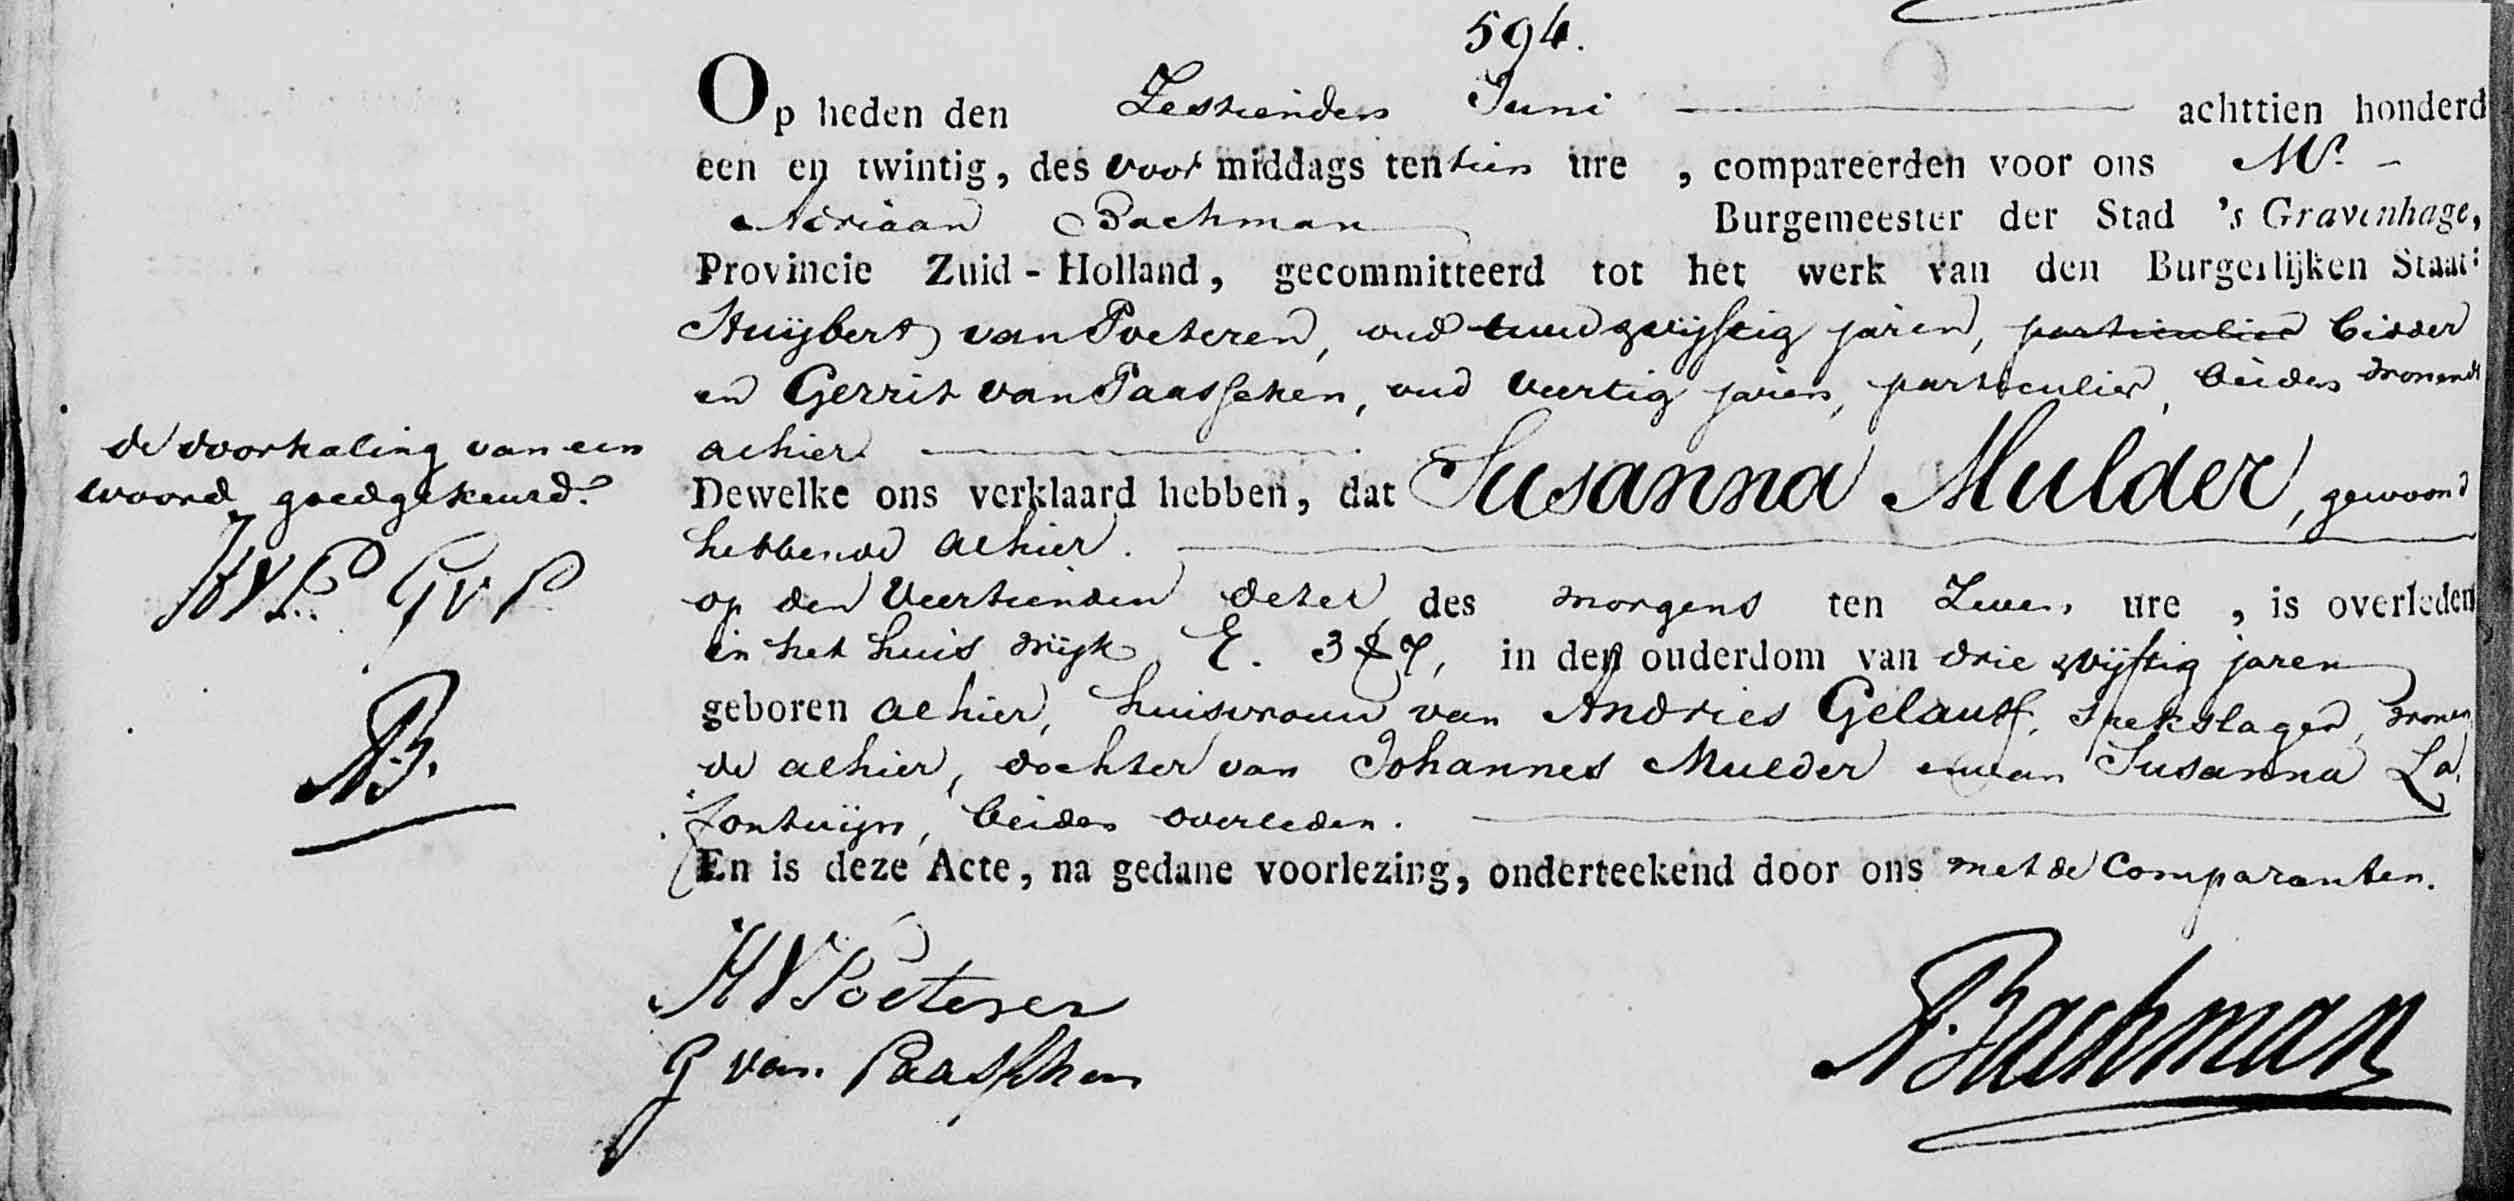 594.
Op heden den Zestienden Juni achttien honderd
een en twintig, des voor middags ten tien ure , compareerden voor ons Mr.
Adriaan Bachman Burgemeester der Stad 's Gravenhage,
Provincie Zuid-Holland, gecommitteerd tot het werk van den Burgerlijken Staat:
Huijbert van Poeteren, oud twee en vijftig jaren, particulier bidder
en Gerrit van Paasschen, oud veertig jaren, particulier, beiden wonende
alhier.
de doorhaling van een
woord goedgekeurd.
HVP. GVP
AB.
Dewelke ons verklaard hebben, dat Susanna Mulder, gewoond
hebbende alhier.
op den Veertienden dezer des morgens ten zeven ure , is overleden
in het huis wijk E. 327, in den ouderdom van drie & vijftig jaren
geboren alhier, huisvrouw van Andries Gelauff, spekslager, wonen
de alhier, dochter van Johannes Mulder en van Susanna La
fontuijn, beiden overleden.
En is deze Acte, na gedane voorlezing, onderteekend door ons met de Comparanten.
HVPoeteren
G van Paasschen
ABachman